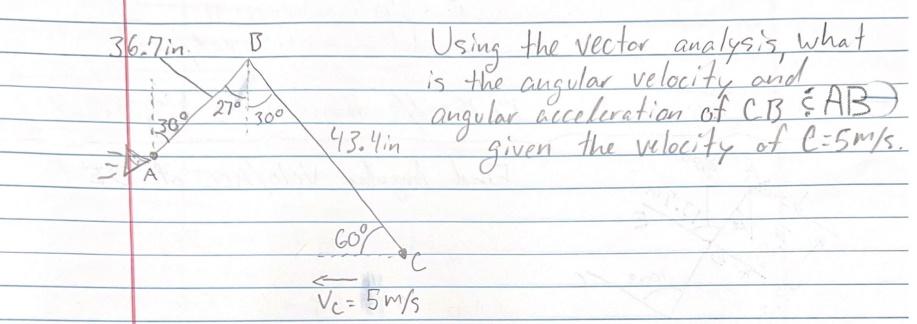 36.7in.
B
Using the vector analysis, what
is the angular velocity and
angular acceleration of CB & AB
given the velocity of C=5m/s.
30°
27°
30°
43.4in
A
60°
C
Vc = 5m/s